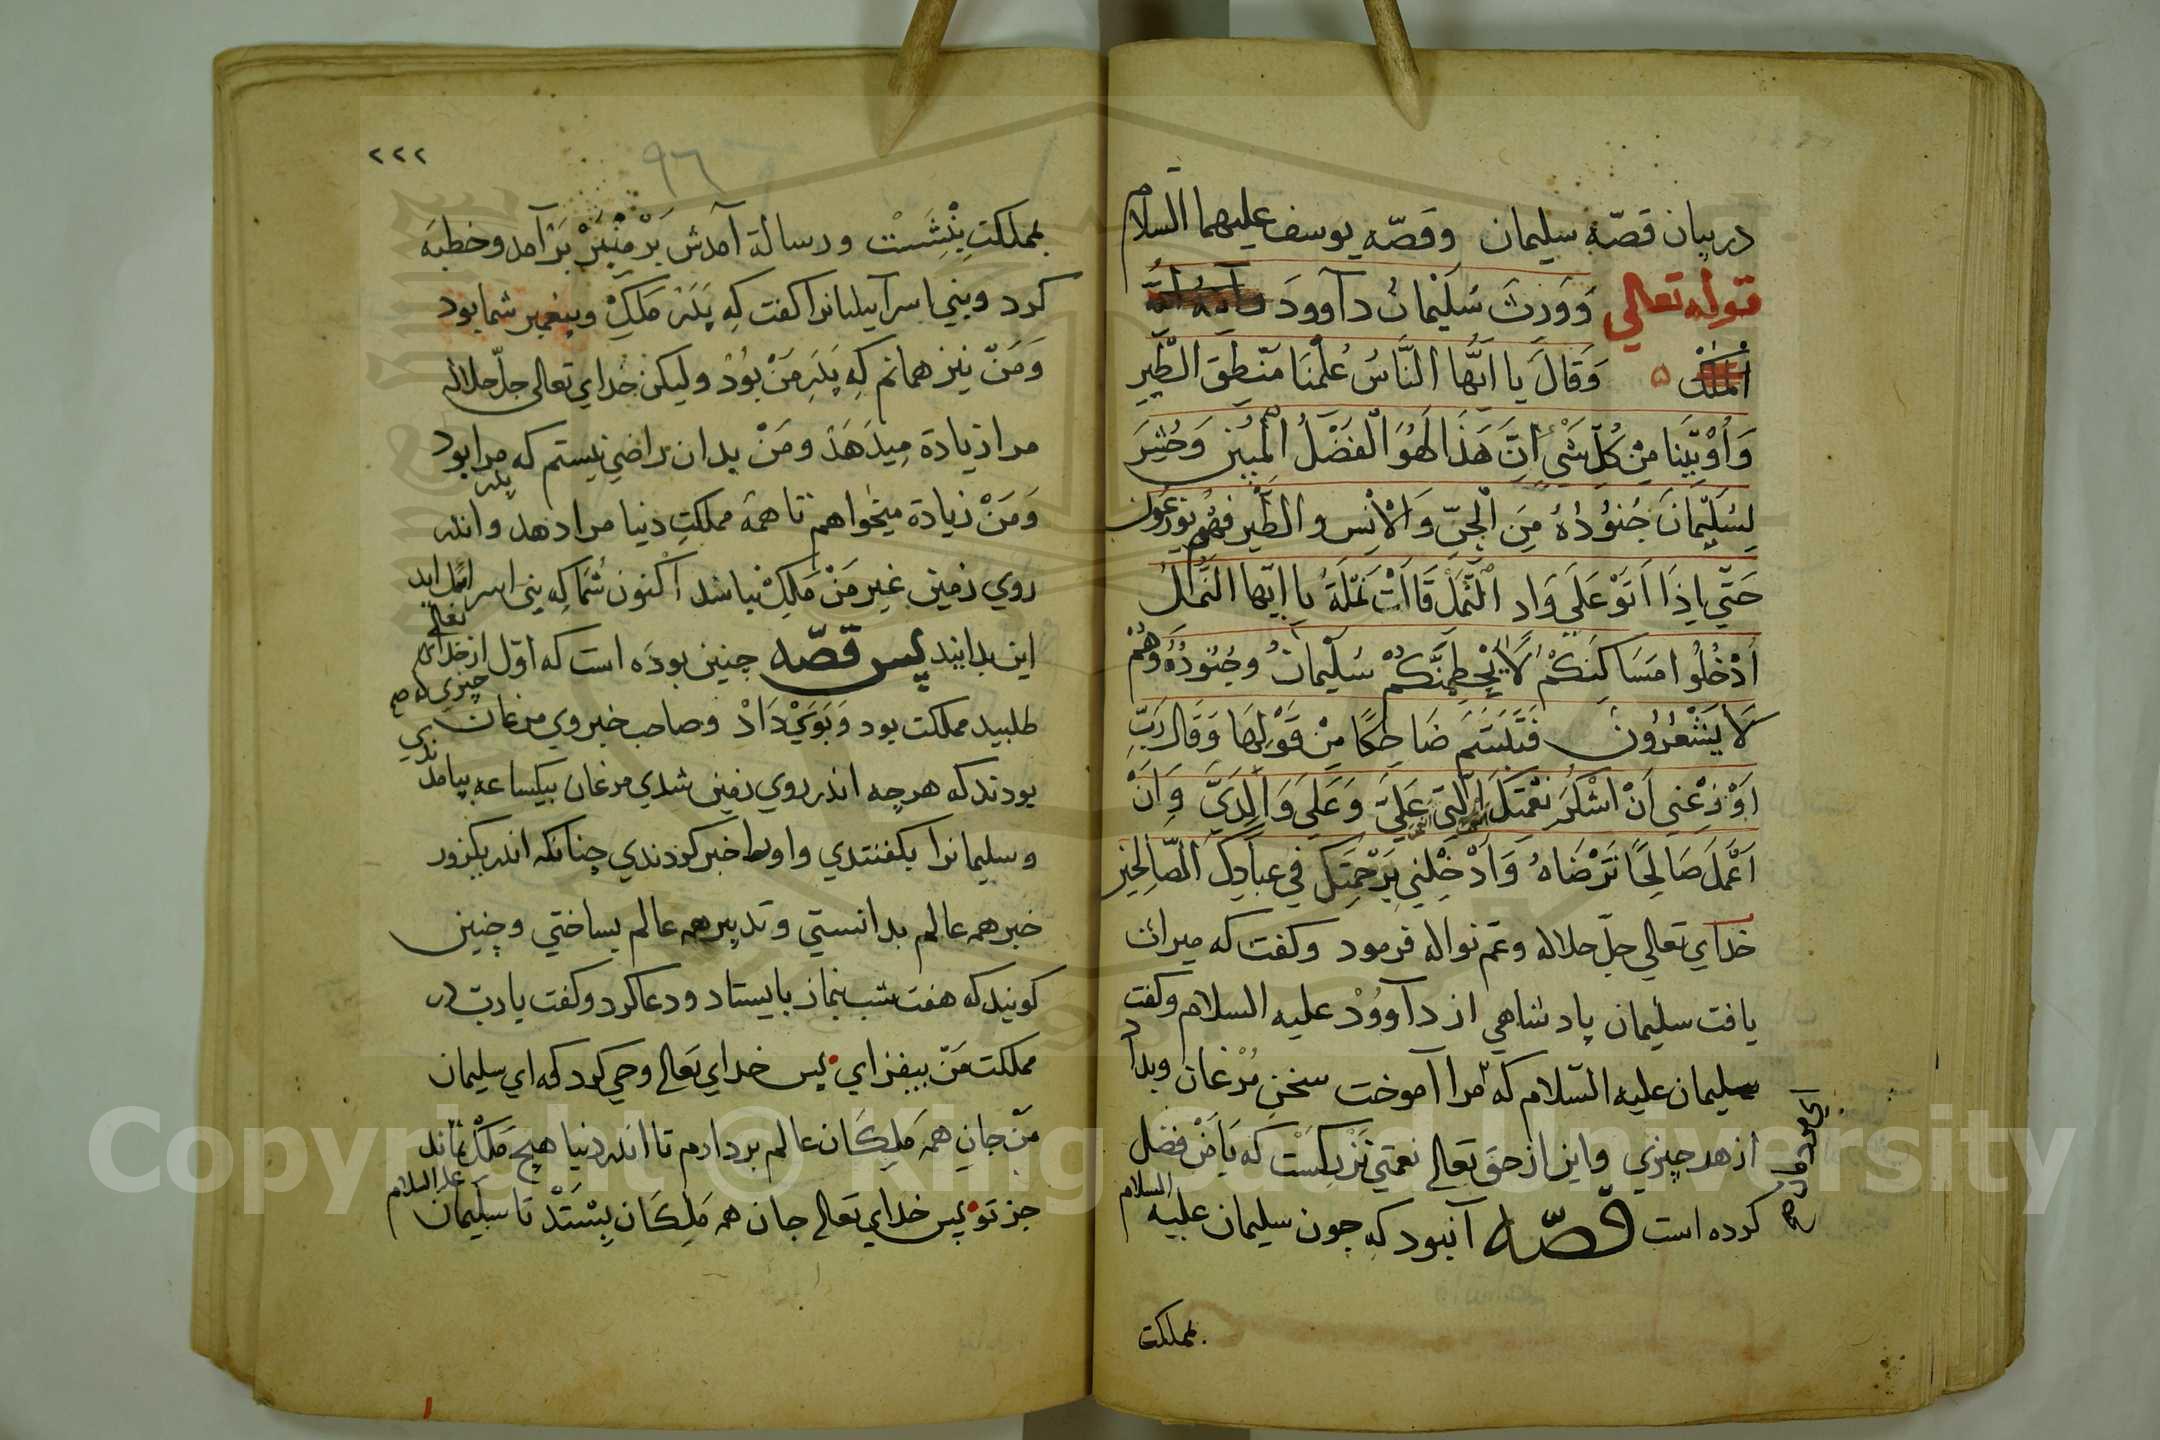 در بيان قصّه سليمان وقصّه يوسف عليهما السلام
قوله تعالى وَوَرِثَ سُلَيْمَانُ دآوودَ
المُلْكَ وَقَالَ يَا اَيُّهَا النَّاسُ عُلِّمْنَا مَنْطِقَ الطَّيْرِ
وَاُوْتِيْنَا مِنْ كُلِّ شَيْءٍ اِنَّ هَذَا لَهُوَ الْفَضْلُ الْمُبِيْن وَحُشِرَ
لِسُلَيْمَانَ جُنُوْدُهُ مِنَ الْجِنِّ وَالْاِنْسِ والطَّيْرِ فَهُم يوزعون
حَتّي اِذَا اَتَوْ عَلَي وَادِ الْنَّمْلِ قَالَتْ نَمْلَةُ يا ايّها النَّمْلُ
اُدْخُلُوا مَسَاكِنَكُمْ لَا يَحْطِمَنَّكُمْ سُلَيْمانُ وجُنُوْدُهُ وَهُمْ
لَا يَشْعُرُوْن فَتَبَسَّمَ ضَاحِكًا مِنْ قَوْلِهَا وَقَالَ رَبِّ
اَوْزِعْنِي اَنْ اَشْكُرَ نِعْمَتَكَ الَّتِي انعمت عَلَيَّ وَعَلَي وَالِدَيَّ وَاَنْ
اَعْمَلَ صَالِحًا تَرْضَاهُ وَاَدْخِلْنِي بِرَحْمَتِكَ فِي عِبَادِكَ الصَّالِحِيْن
خداي تعالي جلّ جلاله وعَمّ نواله فرمود وكفت كه ميراث
يافت سليمان پادشاهي از دآووُدْ عليه السلام وكفت
سليمان عليه السّلام كه مرا آموخت سخنِ مُرْغان وبداد
از هر چيزي واين از حق تعالے نعمتي بَزْرِكَسْت كه بَا مَنْ فضل
كرده است قصّه آنبود كه چون سليمان عليه السلام
بمملكت
٢٢٢
٩٦
بمملكتِ بِنْشَسْت ورسالة آمدش بَرْ مِنْبَرْ بَرْآمد وخطبَه
كرد وبني اسرآييليانرا كفت كِه پَدَرَمْ مَلِكْ وپيغمبر شما بود
وَمَنْ نيز همانم كِه پَدَرِ مَنْ بُوْد وليكن خداي تعالى جلّ جلاله
مرا زيادة مِيدَهَدْ ومَنْ بدان راضي نيستم كه پدر مرا بود
وَمَنْ زيادة ميخواهم تا همهٔ مملكتِ دنيا مرا دهد واندر
روي زمين غير مَنْ مَلِكْ نباشد اكْنون شُمَا كِه بني اسرائيل ايد
اين بدانيد پس قصّه چنين بودَه است كه اوّل از خداى تعالى چيزي كه
طلبيد مملكت بود وَبَوَيْ دَادْ وصاحب خبر وي مرغان
بودند كه هرچه اندر روي زمين شدي مرغان بيكساعه بيامدندي
وسليمانرا بكفتندي واورا خبر كردندي چنانكه اندر يكروز
خبر همه عالم بدانستي وتدبير همه عالم بساختي وچنين
كويند كه هفت شب بنماز بايستاد ودعا كرد وكفت يا ربّ در
مملكت مَنْ بيفزاي پس خداي تعالے وحي كرد كه اي سليمان
مَنْ جانِ همه مَلِكَان عالم بردارم تا اندر دنيا هيچ مَلِكْ نماند
جز تو پس خداي تعالے جان همه مَلِكَان بِسْتَدْ تا سليمان عليه السلام